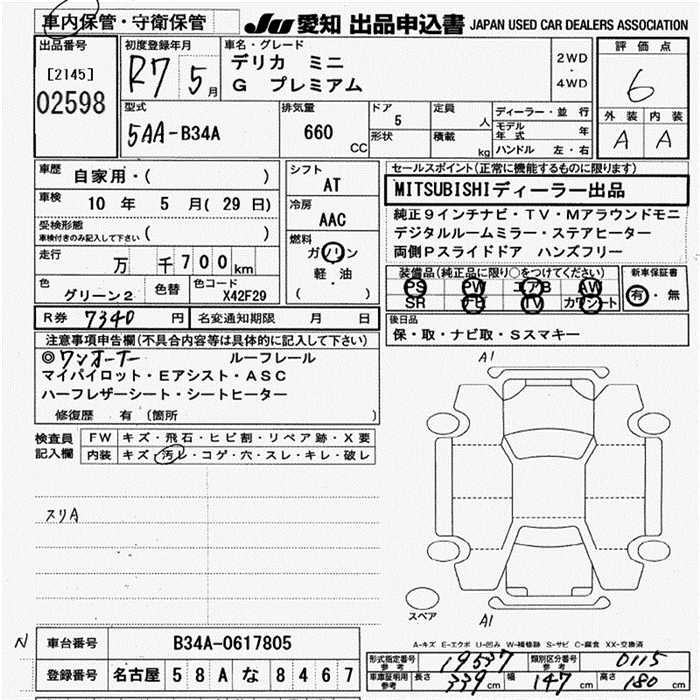 車内保管・守衛保管
JU 愛知 出品申込書 JAPAN USED CAR DEALERS ASSOCIATION
出品番号
[2145]
02598
初度登録年月
R7 5月
車名・グレード
デリカ ミニ
G プレミアム
2WD
・
4WD
評価点
6
外装 内装
A A
型式
5AA-B34A
排気量
660
CC
ドア
5
形状
定員
人
積載
kg
ディーラー・並行
モデル年式 年
ハンドル 左・右
車歴
自家用・( )
車検
10 年 5 月( 29 日)
受検形態
車検付きのみ記入して下さい ( )
走行
万 千700km
色
グリーン2
色替
色コード
X42F29
シフト
AT
冷房
AAC
燃料
ガソリン
軽・油
( )
セールスポイント(正常に機能するものに限ります)
MITSUBISHIディーラー出品
純正9インチナビ・TV・Mアラウンドモニ
デジタルルームミラー・ステアヒーター
両側Pスライドドア ハンズフリー
装備品(純正品に限り○をつけてください)
PS PW エアB AW
SR ナビ TV カワシート
新車保証書
有・無
後日品
保・取・ナビ取・Sスマキー
R券 7340 円
名変通知期限 月 日
注意事項申告欄(不具合内容等は具体的に記入して下さい)
◎ワンオーナー ルーフレール
マイパイロット・Eアシスト・ASC
ハーフレザーシート・シートヒーター
修復歴 有 (箇所 )
検査員記入欄
FW キズ・飛石・ヒビ割・リペア跡・X要
内装 キズ・汚レ・コゲ・穴・スレ・キレ・破レ
スリA
A1
A1
スペア
A-キズ E-エクボ U-凹み W-補修跡 S-サビ C-腐食 XX-交換済
N
車台番号 B34A-0617805
登録番号 名古屋 58A な 8467
形式指定番号 参考 19537
類別区分番号 参考 0115
車庫証明用 参考 長さ 339 cm 幅 147 cm 高さ 180 cm